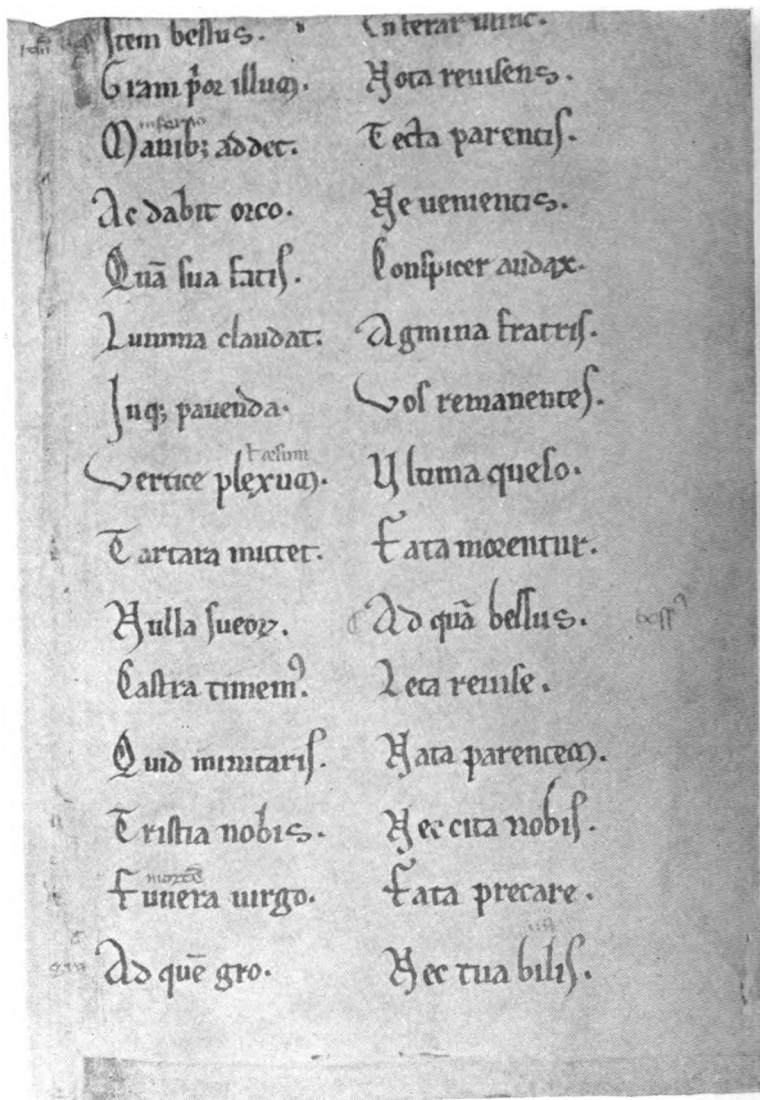 Item bessus.
Gram p̄or illum.
inferno
Manib; addet.
Ac dabit orco.
Quā sua fatis.
Lumina claudat.
Inq; pauenda.
ł cesum
Vertice plexum.
Tartara mittet.
Nulla sueoꝝ.
Castra timemꝰ.
Quid minitaris.
Tristia nobis.
mortē
Funera uirgo.
Ad quē gro.
illinc.
Nota reuisens.
Tecta parentis.
Ne uenientis.
Conspicer audax.
Agmina fratris.
Vos remanentes.
Vltima queso.
Fata morentur.
Ad quā bessus.
Leta reuise.
Nata parentem.
Nec cita nobis.
Fata precare.
Nec tua bilis.